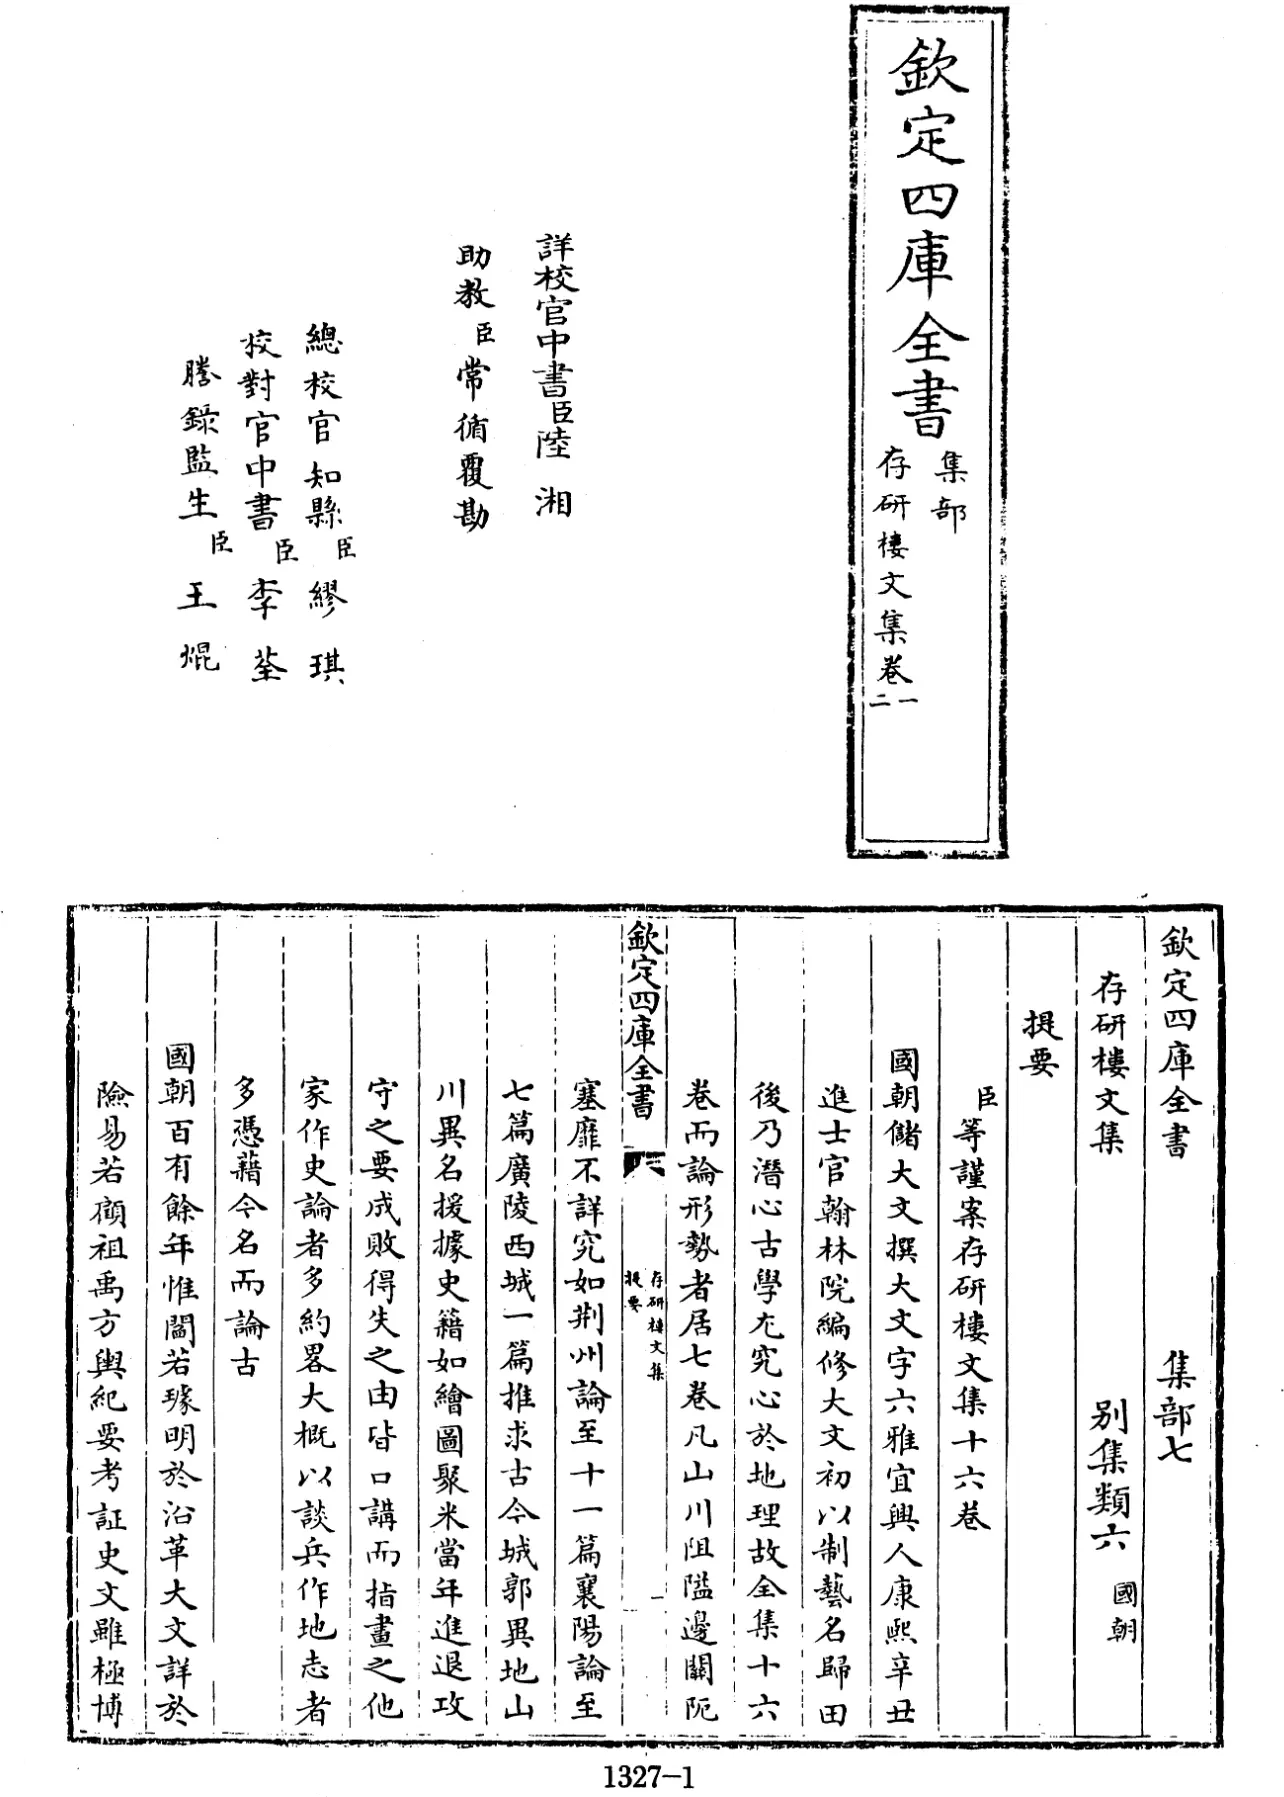 欽定四庫全書
集部
存研樓文集卷一
二
詳校官中書臣陸湘
助教臣常循覆勘
總校官知縣臣繆琪
校對官中書臣李荃
謄錄監生臣王焜
欽定四庫全書
集部七
存研樓文集
別集類六
國朝
提要
臣等謹案存研樓文集十六卷
國朝儲大文撰大文字六雅宜興人康熙辛丑
進士官翰林院編修大文初以制藝名歸田
後乃潛心古學尤究心於地理故全集十六
卷而論形勢者居七卷凡山川阻隘邊關阨
欽定四庫全書
存研樓文集
提要
一
塞靡不詳究如荆州論至十一篇襄陽論至
七篇廣陵西城一篇推求古今城郭異地山
川異名援據史籍如繪圖聚米當年進退攻
守之要成敗得失之由皆口講而指畫之他
家作史論者多約畧大概以談兵作地志者
多憑藉今名而論古
國朝百有餘年惟閻若璩明於沿革大文詳於
險易若顧祖禹方輿紀要考証史文雖極博
1327-1